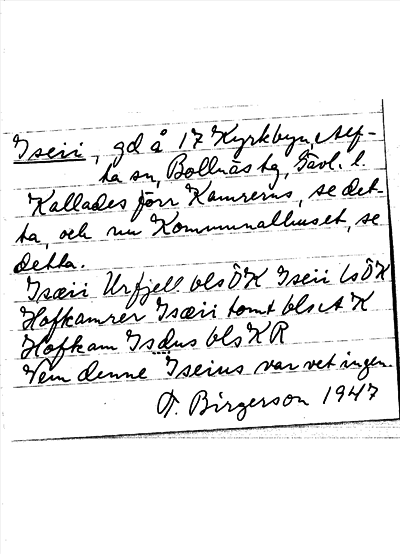 Iseii, gd å 17 Kyrkbyn, Alf-
ta sn, Bollnäs tg, Gävl. l.
Kallades förr Kamrerns, se det-
ta, och nu Kommunalhuset, se
detta.
Isæii Urfjell bls ÖK Iseii ls ÖK
Hofkamrer Isæii tomt bls A K
Hofkam Isdus bls K R
Vem denne Iseius var vet ingen.
T. Birgerson 1947